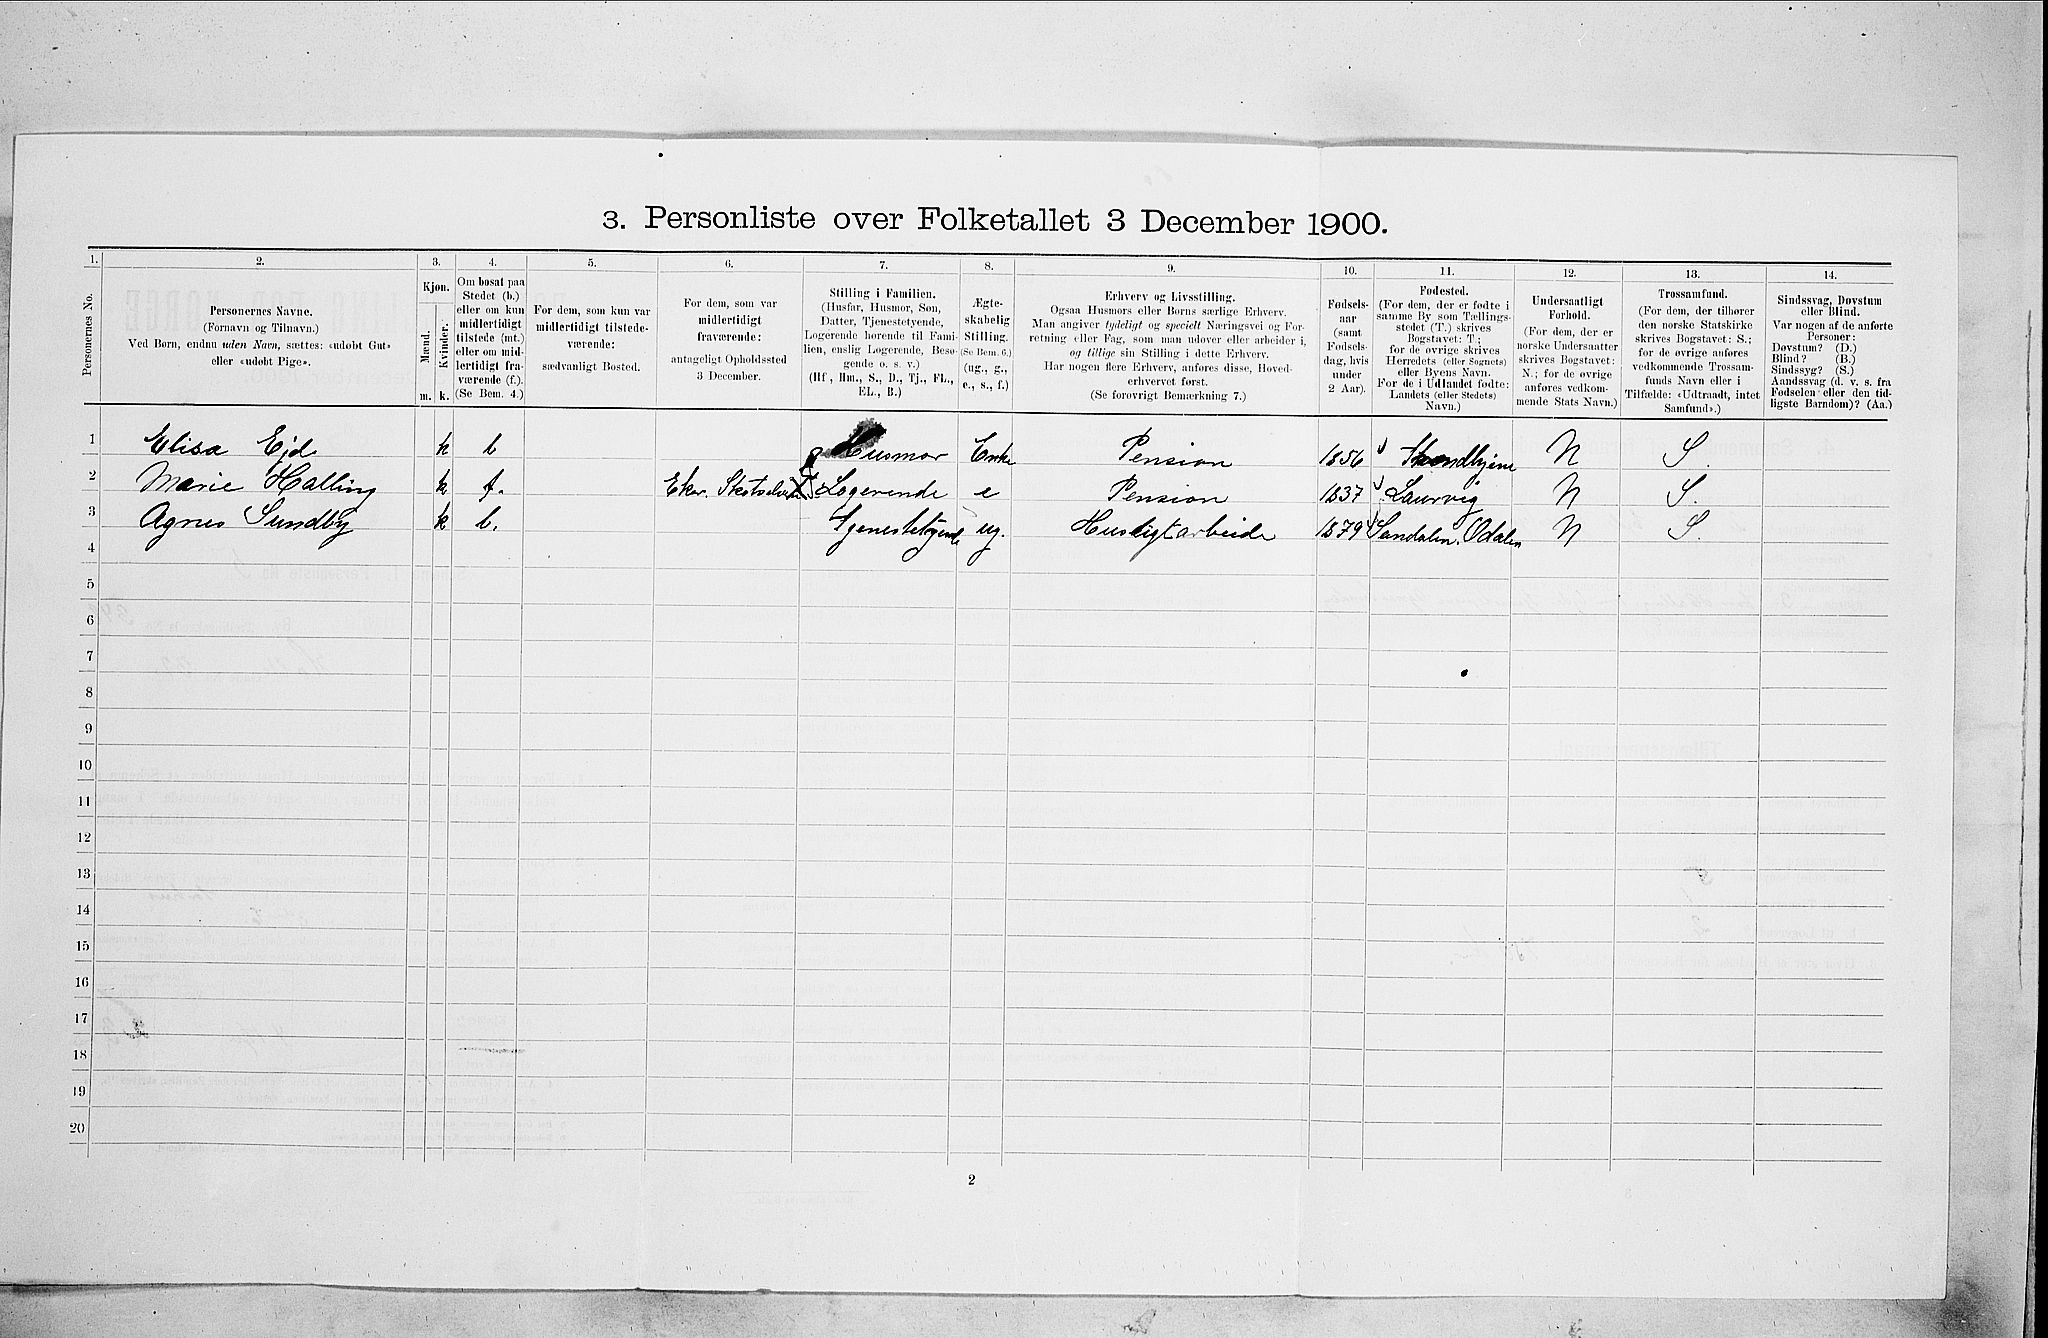 3. Personliste over Folketallet 3 December 1900.
1. 2. 3. 4. 5. 6. 7. 8. 9. 10. 11. 12. 13. 14.
Personernes No.
Personernes Navne.
(Fornavn og Tilnavn.)
Ved Børn, endnu uden Navn, sættes: «udøbt Gut»
eller «udøbt Pige».
Kjøn.
Mænd.
Kvinder.
m. k.
Om bosat paa
Stedet (b.)
eller om kun
midlertidigt
tilstede (mt.)
eller om mid-
lertidigt fra-
værende (f.).
(Se Bem. 4.)
For dem, som kun var
midlertidigt tilstede-
værende:
sædvanligt Bosted.
For dem, som var
midlertidigt
fraværende:
antageligt Opholdssted
3 December.
Stilling i Familien.
(Husfar, Husmor, Søn,
Datter, Tjenestetyende,
Logerende hørende til Fami-
lien, enslig Logerende, Besø-
gende o. s. v.)
(Hf, Hm., S., D., Tj., FL.,
EL., B.)
Ægte-
skabelig
Stilling.
(Se Bem. 6.)
(ug., g.,
e., s., f.)
Erhverv og Livsstilling.
Ogsaa Husmors eller Børns særlige Erhverv.
Man angiver tydeligt og specielt Næringsvei og For-
retning eller Fag, som man udøver eller arbeider i,
og tillige sin Stilling i dette Erhverv.
Har nogen flere Erhverv, anføres disse, Hoved-
erhvervet først.
(Se forøvrigt Bemærkning 7.)
Fødsels-
aar
(samt
Fødsels-
dag, hvis
under
2 Aar).
Fødested.
(For dem, der er fødte i
samme By som Tællings-
stedet (T.) skrives
Bogstavet: T.;
for de øvrige skrives
Herredets (eller Sognets)
eller Byens Navn.
For de i Udlandet fødte:
Landets (eller Stedets)
Navn.)
Undersaatligt
Forhold.
(For dem, der er
norske Undersaatter
skrives Bogstavet:
N.; for de øvrige
anføres vedkom-
mende Stats Navn.)
Trossamfund.
(For dem, der tilhører
den norske Statskirke
skrives Bogstavet: S.;
for de øvrige anføres
vedkommende Trossam-
funds Navn eller i
Tilfælde: «Udtraadt, intet
Samfund».)
Sindssvag, Døvstum
eller Blind.
Var nogen af de anførte
Personer:
Døvstum? (D.)
Blind? (B.)
Sindssyg? (S.)
Aandssvag (d. v. s. fra
Fødselen eller den tid-
ligste Barndom)? (Aa.)
1 Elisa Ejd k b Husmor Enke Pension 1856 N S.
2 Marie Halling k f. Eker. Logerende e Pension 1837 Laurvig N S.
3 Agnes Sundby k b. Tjenestetyende ug. Husligt arbeide 1879 Sandalen. Odalen N S.
4
5
6
7
8
9
10
11
12
13
14
15
16
17
18
19
20
2